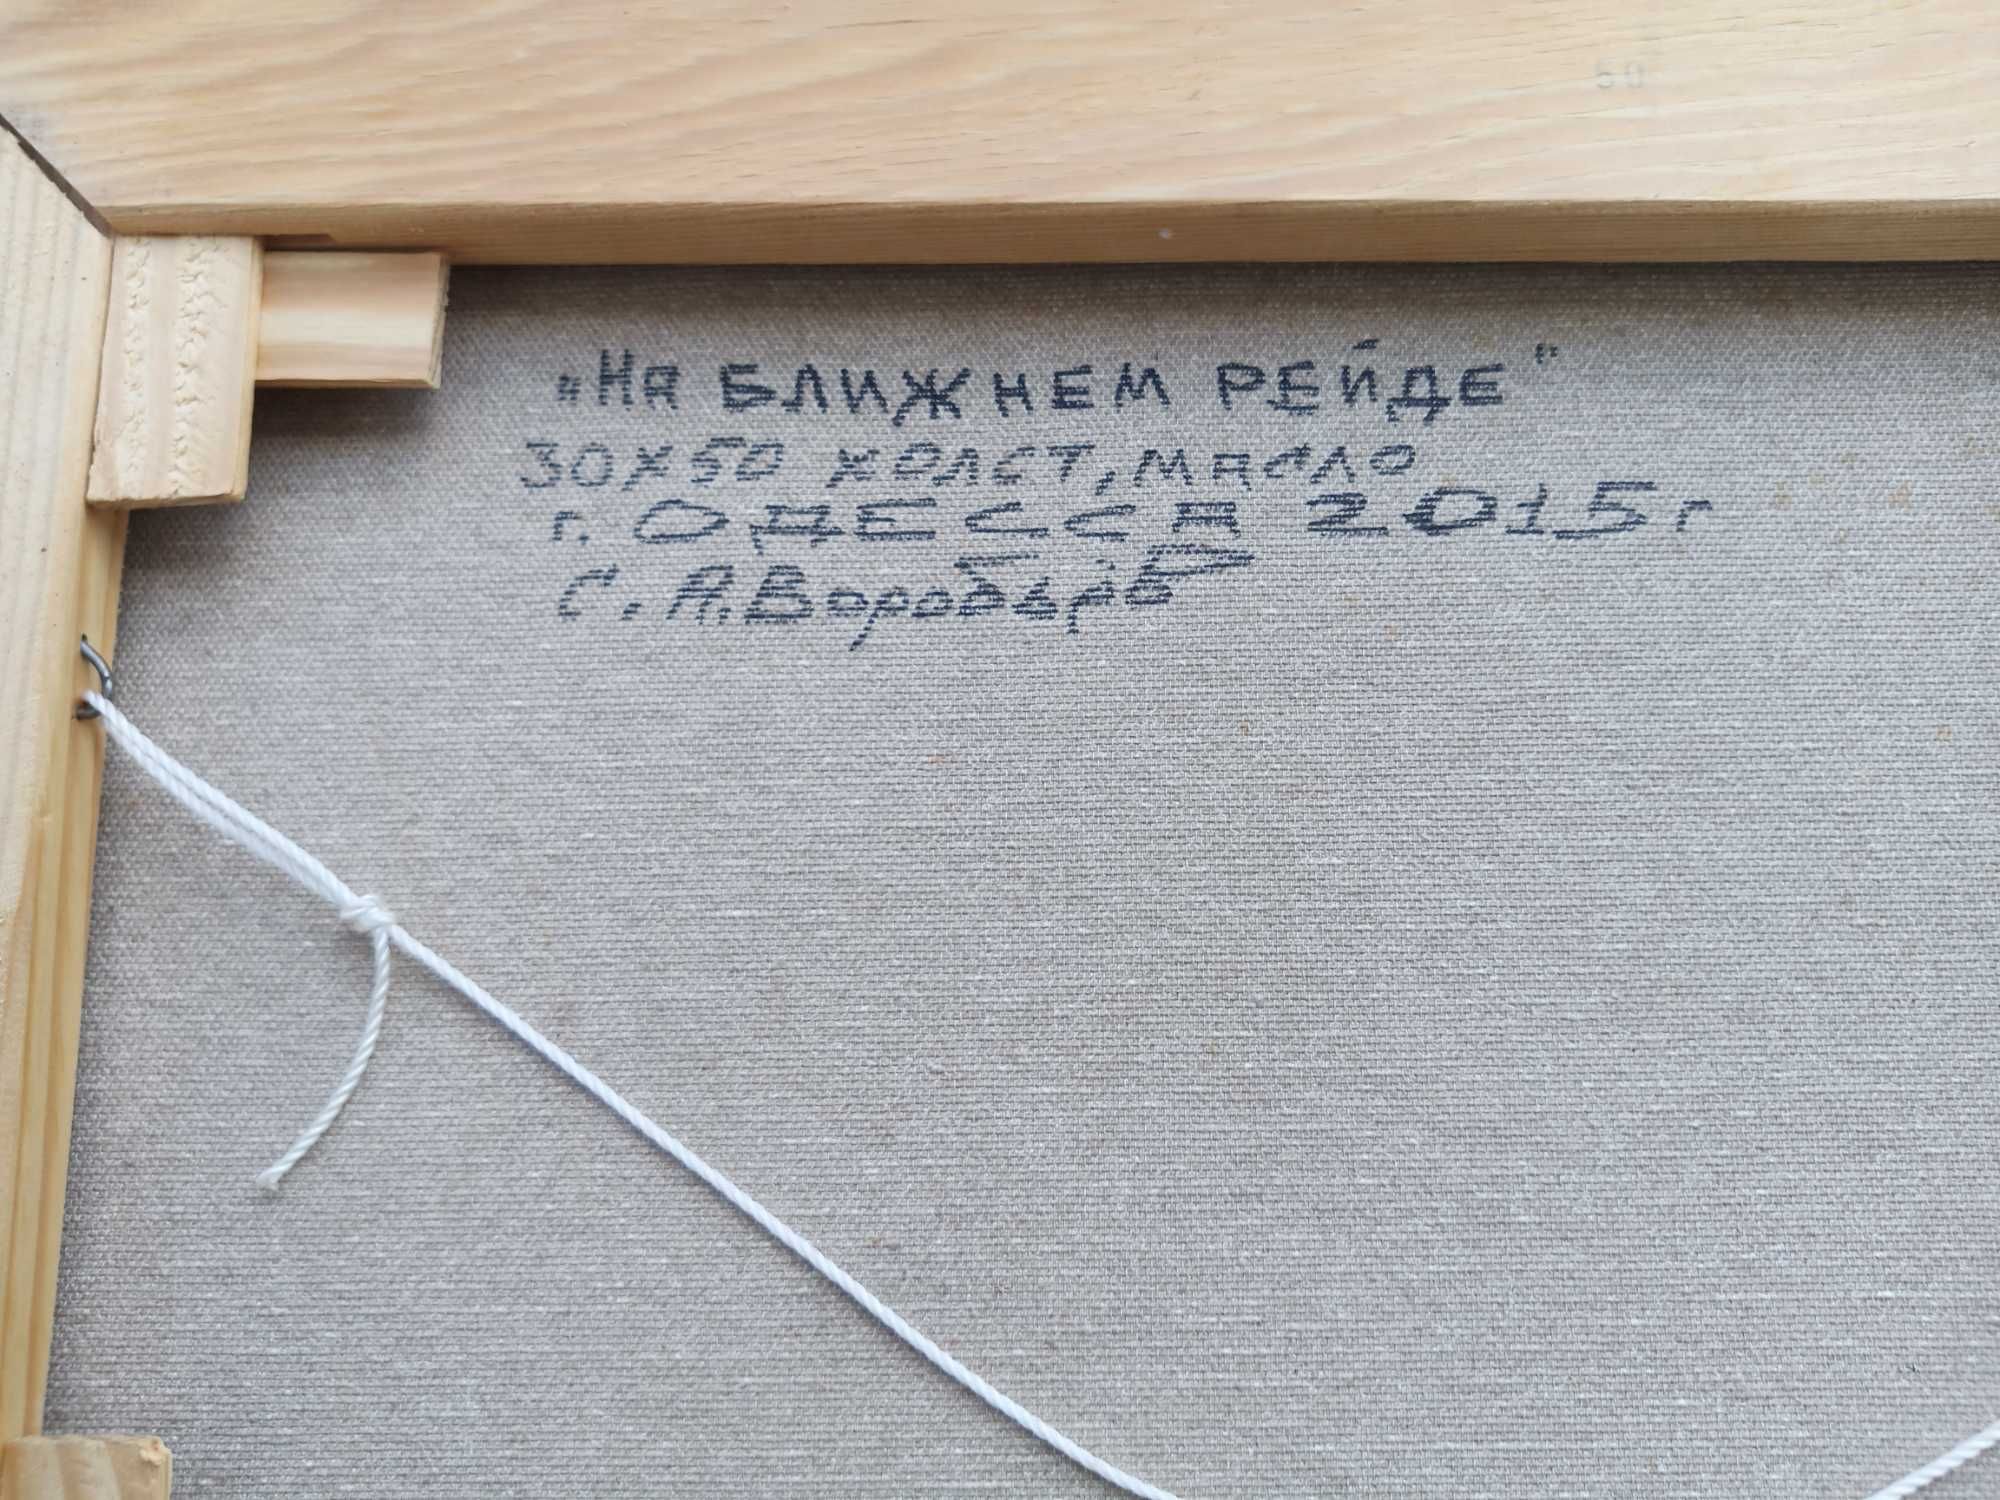 50
„На БЛИЖНЕМ РЕЙДЕ"
30х50 холст, масло
г. ОДЕССА 2015г
С. А. Воробьёв